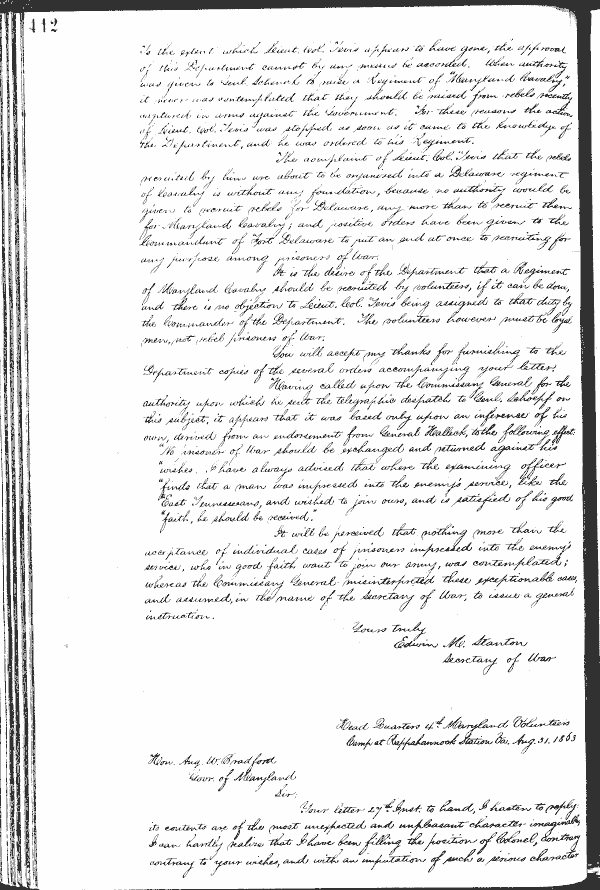 112
To the extent which Lieut. Col. Tevis appears to have gone, the approval
of this Department cannot by any means be accorded. When authority
was given to Genl. Schenck to raise a Regiment of "Maryland Cavalry,"
it never was contemplated that they should be raised from rebels recently
captured in arms against the Government. For these reasons the action
of Lieut. Col. Tevis was stopped as soon as it came to the knowledge of
the Department, and he was ordered to his Regiment.
The complaint of Lieut. Col. Tevis that the rebels
recruited by him are about to be organized into a Delaware regiment
of Cavalry is without any foundation, because no authority would be
given to recruit rebels for Delaware, any more than to recruit them
for Maryland Cavalry; and positive orders have been given to the
Commandant of Fort Delaware to put an end at once to recruiting for
any purpose among prisoners of War.
It is the desire of the Department that a Regiment
of Maryland Cavalry should be recruited by volunteers, if it can be done,
and there is no objection to Lieut. Col. Tevis being assigned to that duty by
the Commander of the Department. The volunteers however must be loyal
men, not rebel prisoners of War.
You will accept my thanks for furnishing to the
Department copies of the several orders accompanying your letter.
Having called upon the Commissary General for the
authority upon which he sent the telegraphic despatch to Genl. Schoepf on
this subject, it appears that it was based only upon an inference of his
own, derived from an endorsement from General Halleck, to the following effect
"No prisoner of War should be exchanged and returned against his
"wishes. I have always advised that where the examining officer
"finds that a man was impressed into the enemy's service, like the
"East Tennesseeans, and wished to join ours, and is satisfied of his good
"faith, he should be received."
It will be perceived that nothing more than the
acceptance of individual cases of prisoners impressed into the enemy's
service, who in good faith want to join our army, was contemplated;
whereas the Commissary General misinterpreted these exceptionable cases,
and assumed, in the name of the Secretary of War, to issue a general
instruction.
Yours truly
Edwin M. Stanton
Secretary of War
Head Quarters 4th Maryland Volunteers
Camp at Rappahannock Station Va. Aug. 31, 1863
Hon. Aug. W. Bradford
Govr. of Maryland
Sir:
Your letter 27th Inst. to hand, I hasten to reply.
its contents are of the most unexpected and unpleasant character imaginable
I can hardly realize that I have been filling the position of Colonel, contrary
contrary to your wishes, and with an imputation of such a serious character